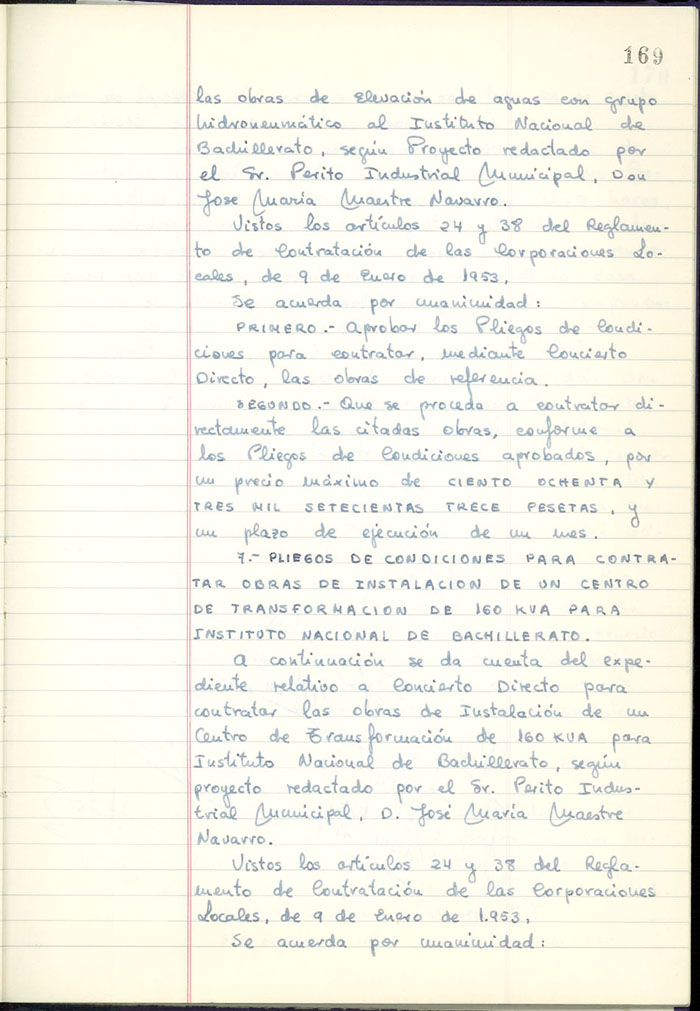 169
las obras de Elevación de aguas con grupo
hidroneumático al Instituto Nacional de
Bachillerato, según Proyecto redactado por
el Sr. Perito Industrial Municipal, Don
José María Maestre Navarro.
Vistos los artículos 24 y 38 del Reglamen-
to de Contratación de las Corporaciones Lo-
cales, de 9 de Enero de 1953,
Se acuerda por unanimidad:
PRIMERO.- Aprobar los Pliegos de Condi-
ciones para contratar, mediante Concierto
Directo, las obras de referencia.
SEGUNDO.- Que se proceda a contratar di-
rectamente las citadas obras, conforme a
los Pliegos de Condiciones aprobados, por
un precio máximo de CIENTO OCHENTA Y
TRES MIL SETECIENTAS TRECE PESETAS, y
un plazo de ejecución de un mes.
7.- PLIEGOS DE CONDICIONES PARA CONTRA-
TAR OBRAS DE INSTALACION DE UN CENTRO
DE TRANSFORMACION DE 160 KVA PARA
INSTITUTO NACIONAL DE BACHILLERATO.
A continuación se da cuenta del expe-
diente relativo a Concierto Directo para
contratar las obras de Instalación de un
Centro de Transformación de 160 KVA para
Instituto Nacional de Bachillerato, según
proyecto redactado por el Sr. Perito Indus-
trial Municipal, D. José María Maestre
Navarro.
Vistos los artículos 24 y 38 del Regla-
mento de Contratación de las Corporaciones
Locales, de 9 de Enero de 1.953,
Se acuerda por unanimidad: